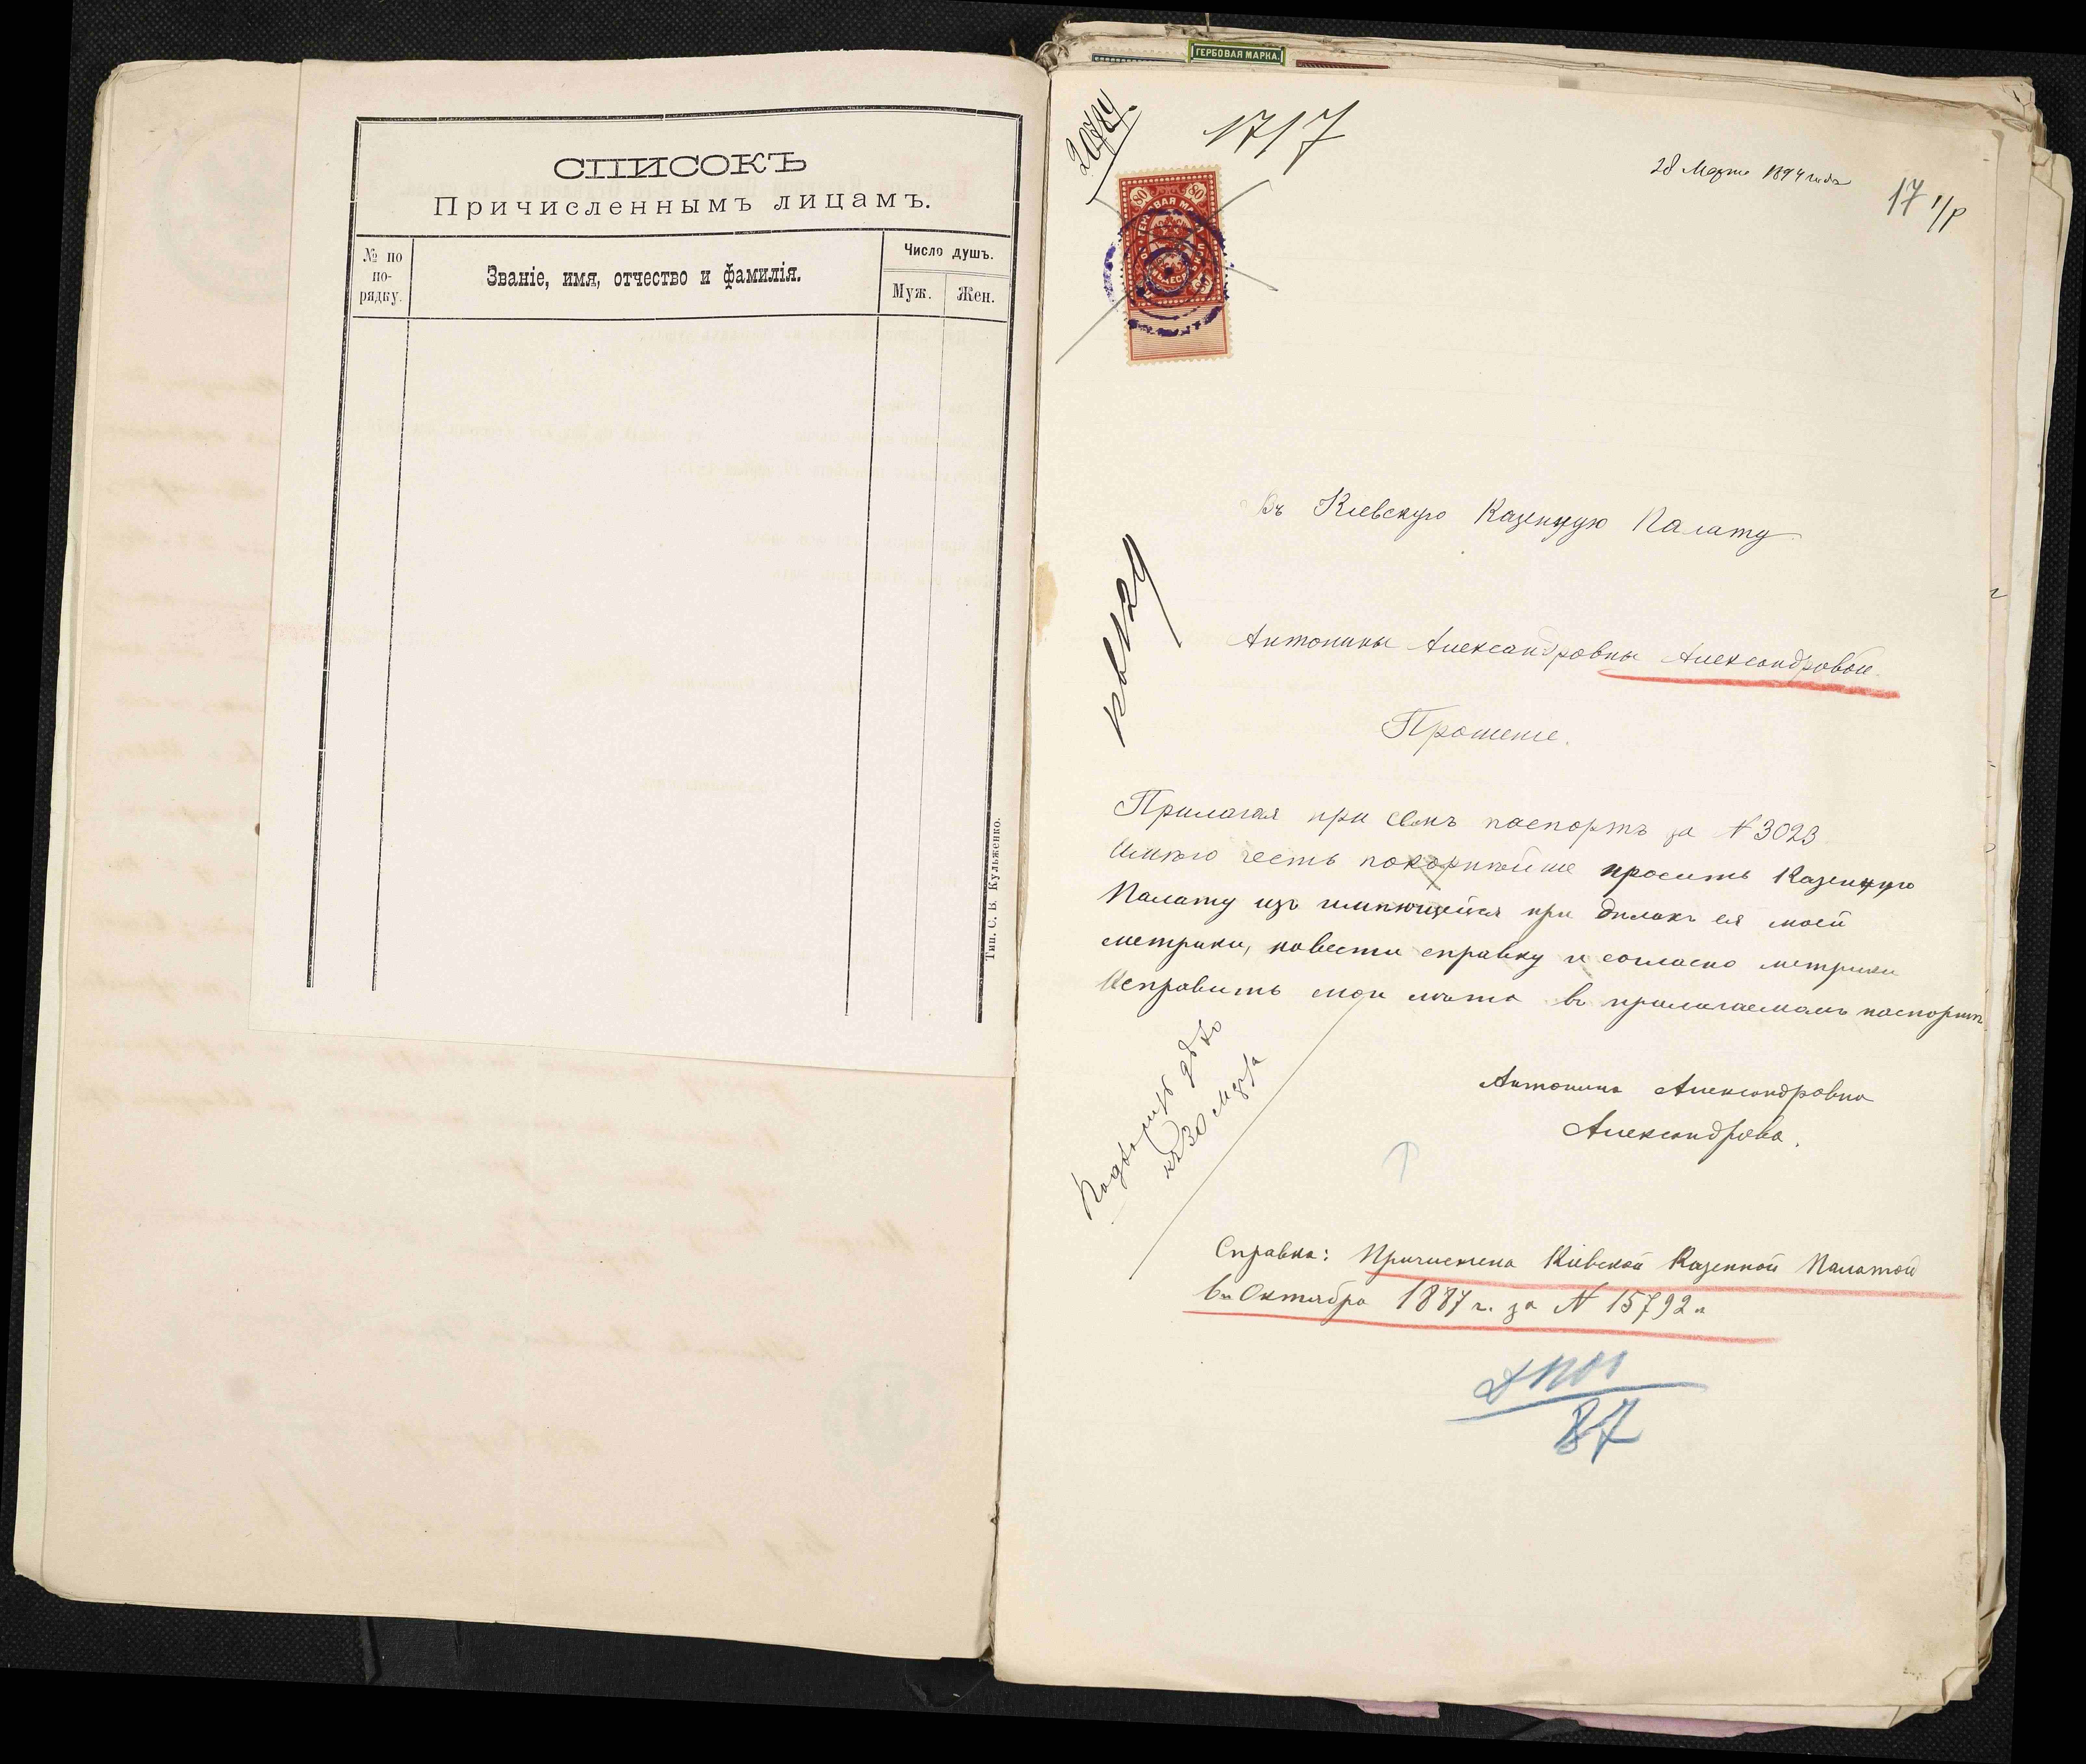 СПИСОКЪ
Причисленнымъ лицамъ.
№ по по- рядку.
Званіе, имя, отчество и фамилія.
Число душъ.
Муж.
Жен.
Тип. С. В. Кульженко.
ГЕРБОВАЯ МАРКА.
20784
1717
28 Марта 1894 года
17
80 80
Въ Кіевскую Казенную Палату
Антонины Александровны Александровой.
Прошеніе.
Прилагая при семъ паспортъ за № 3023
Имѣю честь покорнѣйше просить Казенную
Палату изъ имѣющейся при дѣлахъ ея моей
метрики, навести справку и согласно метрики
Исправить мои лѣта въ прилагаемомъ паспортѣ
Антонина Александровна
Александрова.
дѣло
къ 30 Марта
Справка: Причислена Кіевской Казенной Палатой
въ Октябрѣ 1887 г. за № 15792
87